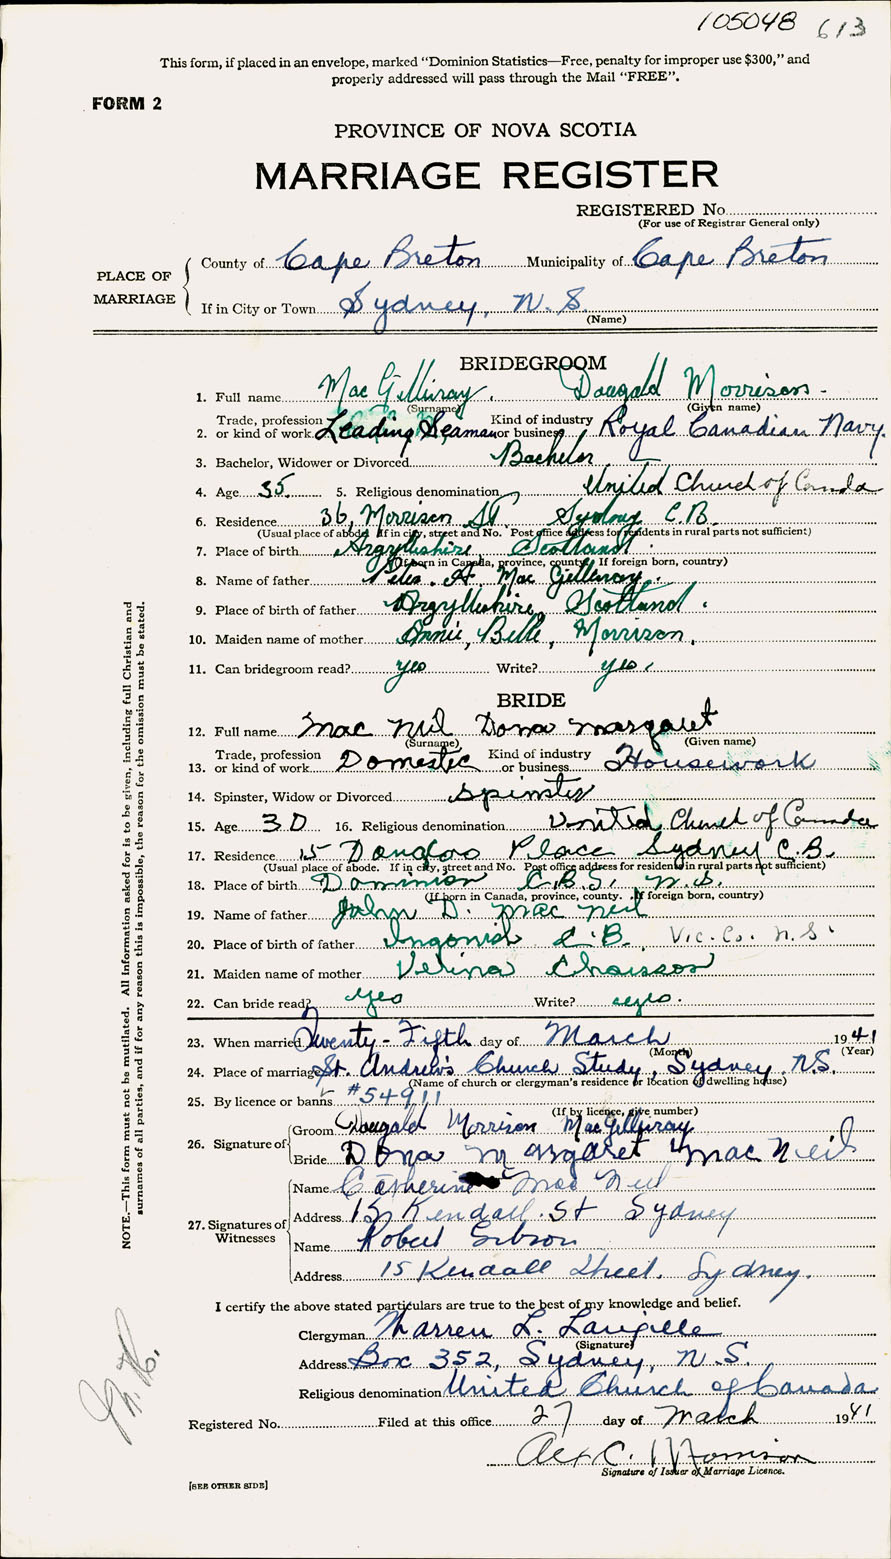 105048 613
This form, if placed in an envelope, marked "Dominion Statistics—Free, penalty for improper use $300," and
properly addressed will pass through the Mail "FREE".
FORM 2
PROVINCE OF NOVA SCOTIA
MARRIAGE REGISTER
REGISTERED No.
(For use of Registrar General only)
PLACE OF MARRIAGE
County of Cape Breton Municipality of Cape Breton
If in City or Town Sydney, N. S.
(Name)
BRIDEGROOM
1. Full name MacGillivray, Dougald Morrison
(Surname) (Given name)
2. Trade, profession or kind of work Leading Seaman Kind of industry or business Royal Canadian Navy.
3. Bachelor, Widower or Divorced Bachelor
4. Age 35 5. Religious denomination United Church of Canada
6. Residence 36, Morrison St Sydney C.B.
(Usual place of abode. If in city, street and No. Post office address for residents in rural parts not sufficient)
7. Place of birth Argyllshire Scotland
(If born in Canada, province, county. If foreign born, country)
8. Name of father A. MacGillivray.
9. Place of birth of father Argyllshire, Scotland.
10. Maiden name of mother Annie, Belle, Morrison.
11. Can bridegroom read? yes Write? yes.
BRIDE
12. Full name MacNeil Dona Margaret
(Surname) (Given name)
13. Trade, profession or kind of work Domestic Kind of industry or business Housework
14. Spinster, Widow or Divorced Spinster
15. Age 30 16. Religious denomination United Church of Canada
17. Residence 15 Douglas Place Sydney C.B.
(Usual place of abode. If in city, street and No. Post office address for residents in rural parts not sufficient)
18. Place of birth Dominion C.B., N.S.
(If born in Canada, province, county. If foreign born, country)
19. Name of father John D. MacNeil
20. Place of birth of father Ingonish C.B. Vic. Co. N.S.
21. Maiden name of mother Verina Chaisson
22. Can bride read? yes Write? yes.
23. When married Twenty-Fifth day of March 1941
(Month) (Year)
24. Place of marriage St. Andrew's Church Study, Sydney, N.S.
(Name of church or clergyman's residence or location of dwelling house)
25. By licence or banns #54911
(If by licence, give number)
26. Signature of Groom Dougald Morrison MacGillivray
Bride Dona Margaret MacNeil
27. Signatures of Witnesses
Name Catherine MacNeil
Address 15 Kendall St Sydney
Name Robert Gibson
Address 15 Kendall Street. Sydney.
I certify the above stated particulars are true to the best of my knowledge and belief.
Clergyman Warren L. Langille
(Signature)
Address Box 352, Sydney, N.S.
Religious denomination United Church of Canada
Registered No. Filed at this office 27 day of March 1941
Alex C. Morrison
Signature of Issuer of Marriage Licence.
[SEE OTHER SIDE]
NOTE.—This form must not be mutilated. All information asked for is to be given, including full Christian and
surnames of all parties, and if for any reason this is impossible, the reason for the omission must be stated.